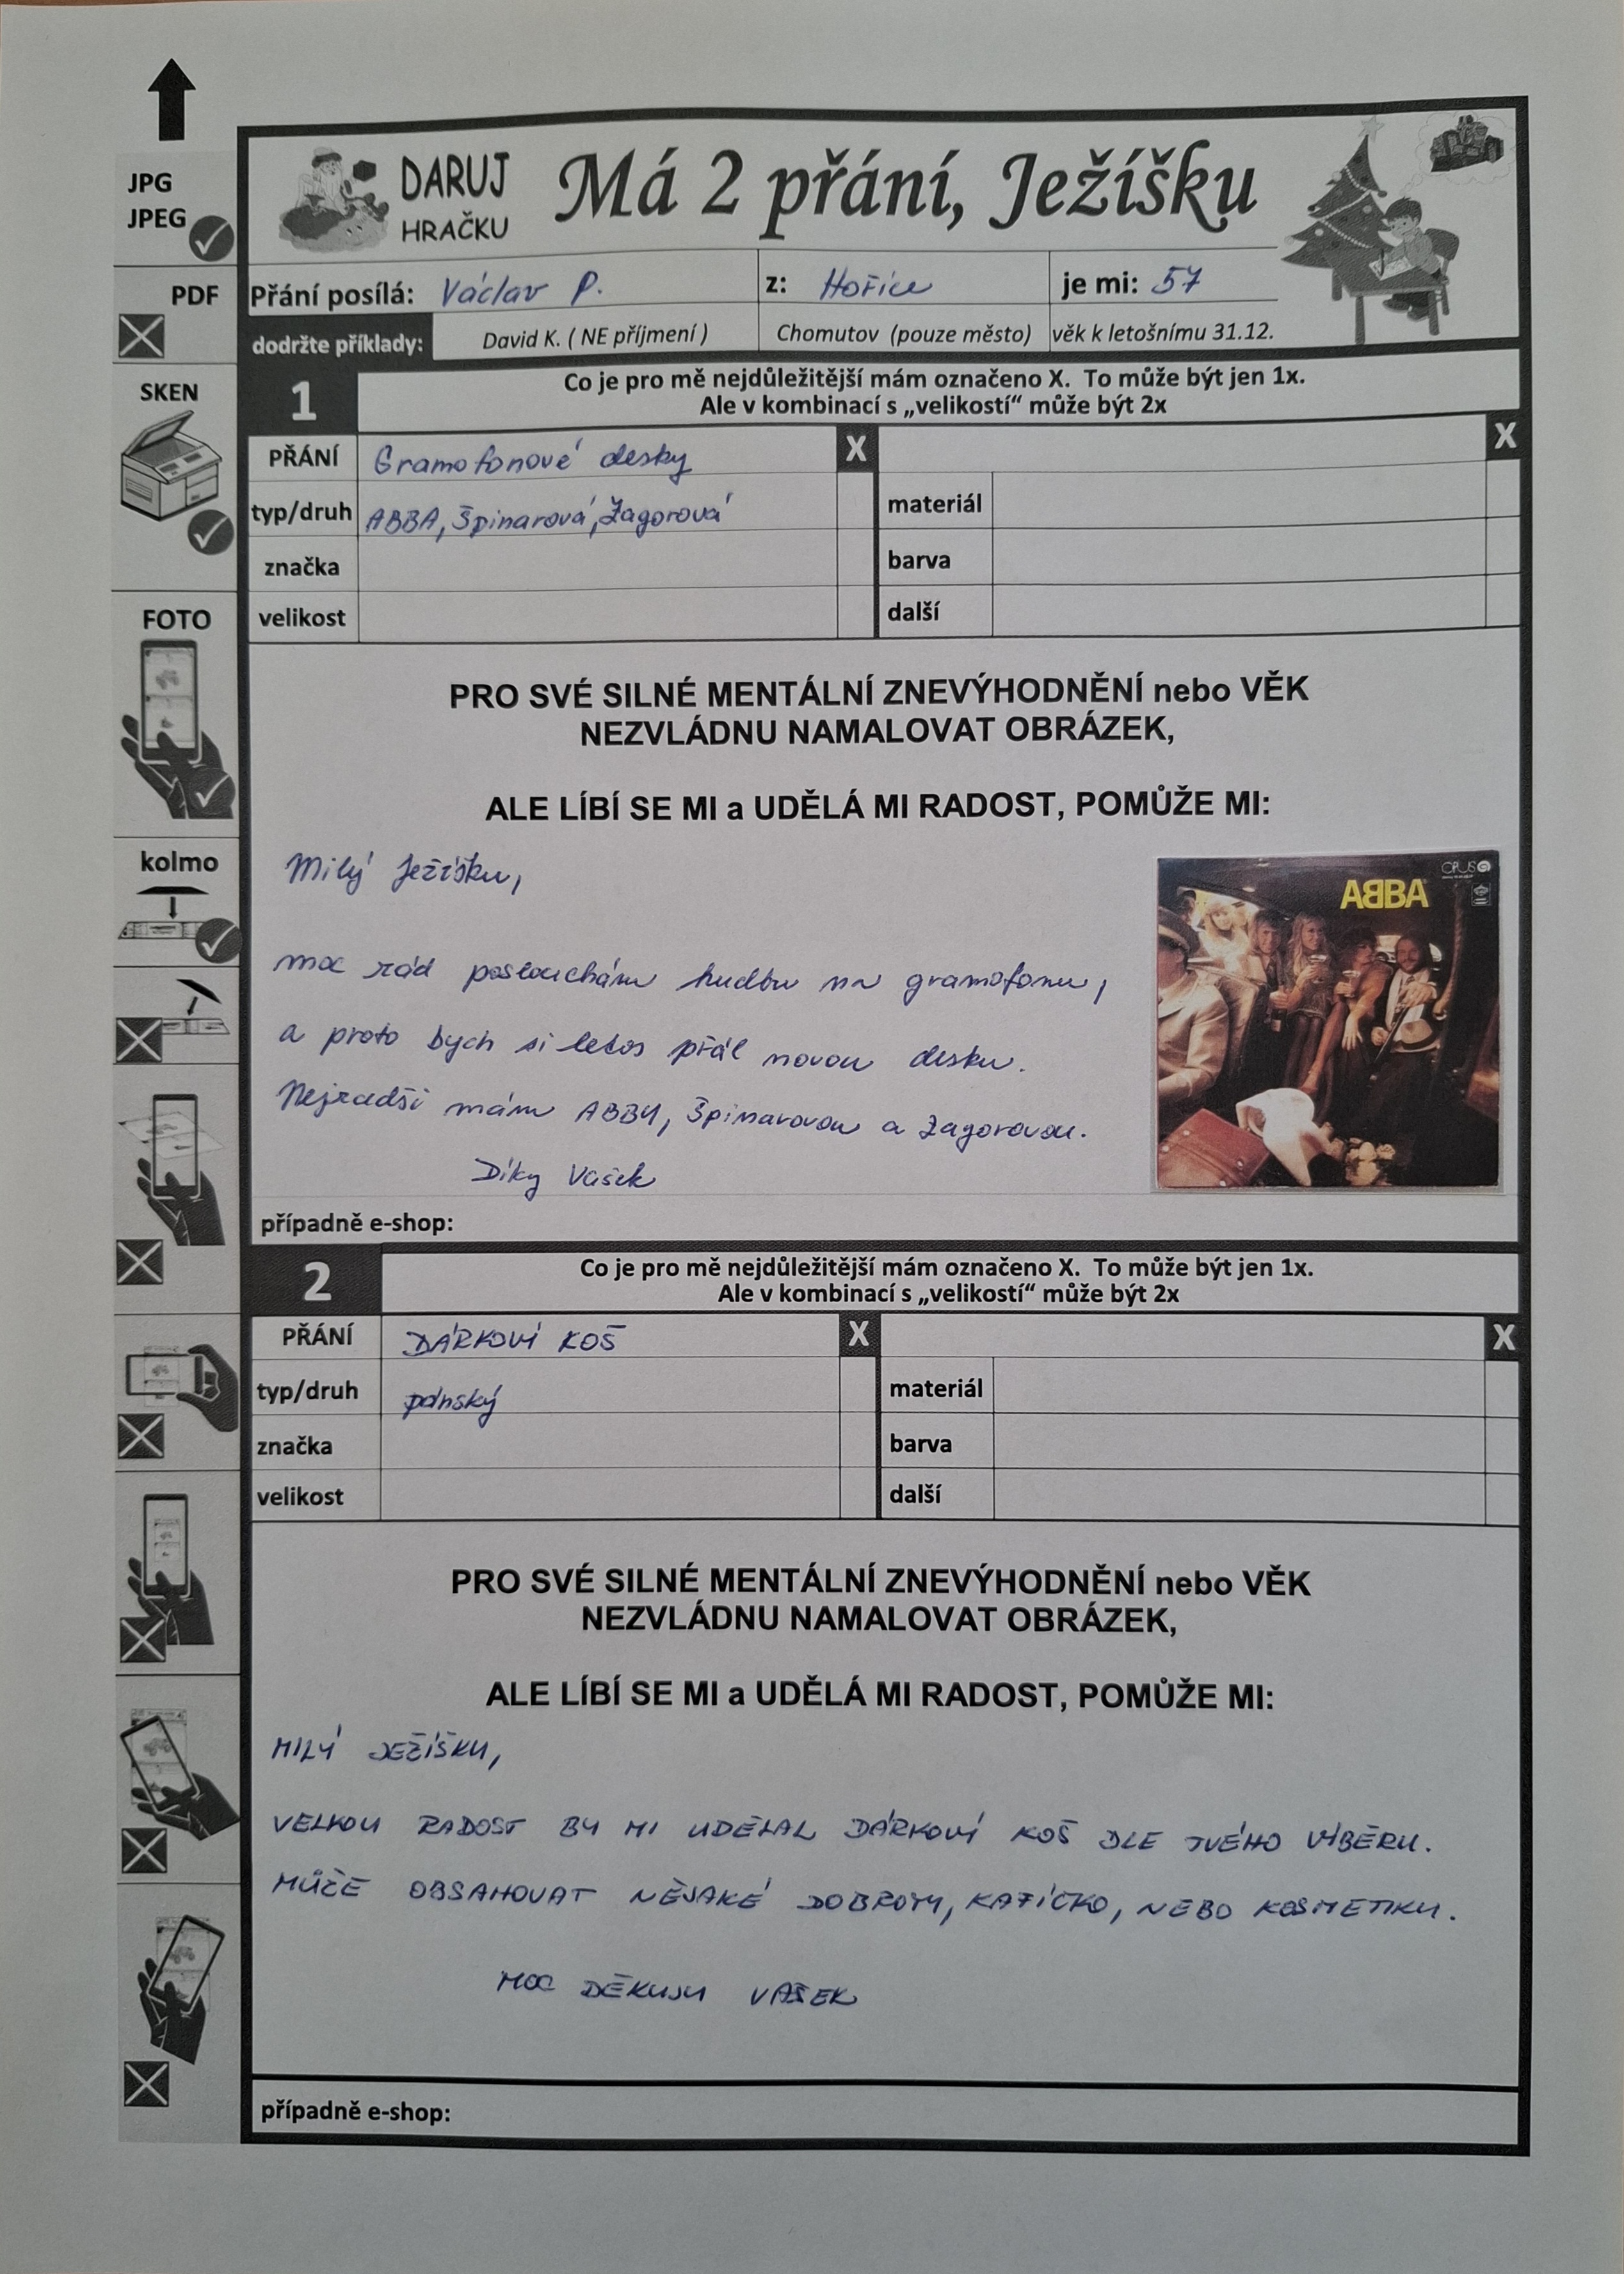 JPG
JPEG
PDF
SKEN
FOTO
kolmo
DARUJ
HRAČKU
Má 2 přání, Ježíšku
Přání posílá: Václav P. z: Hořice je mi: 57
dodržte příklady: David K. ( NE příjmení ) Chomutov (pouze město) věk k letošnímu 31.12.
1 Co je pro mě nejdůležitější mám označeno X. To může být jen 1x.
Ale v kombinací s „velikostí“ může být 2x
PŘÁNÍ Gramofonové desky X X
typ/druh ABBA, Špinarová, Zagorová materiál
značka barva
velikost další
PRO SVÉ SILNÉ MENTÁLNÍ ZNEVÝHODNĚNÍ nebo VĚK
NEZVLÁDNU NAMALOVAT OBRÁZEK,
ALE LÍBÍ SE MI a UDĚLÁ MI RADOST, POMŮŽE MI:
Milý Ježíšku,
moc rád poslouchám hudbu na gramofonu,
a proto bych si letos přál novou desku.
Nejradši mám ABBU, Špinarovou a Zagorovou.
Díky Vašek
OPUS
ABBA
případně e-shop:
2 Co je pro mě nejdůležitější mám označeno X. To může být jen 1x.
Ale v kombinací s „velikostí“ může být 2x
PŘÁNÍ DÁRKOVÝ KOŠ X X
typ/druh pánský materiál
značka barva
velikost další
PRO SVÉ SILNÉ MENTÁLNÍ ZNEVÝHODNĚNÍ nebo VĚK
NEZVLÁDNU NAMALOVAT OBRÁZEK,
ALE LÍBÍ SE MI a UDĚLÁ MI RADOST, POMŮŽE MI:
MILÝ JEŽÍŠKU,
VELKOU RADOST BY MI UDĚLAL DÁRKOVÝ KOŠ DLE TVÉHO VÝBĚRU.
MŮŽE OBSAHOVAT NĚJAKÉ DOBROTY, KAFÍČKO, NEBO KOSMETIKU.
MOC DĚKUJU VAŠEK
případně e-shop: